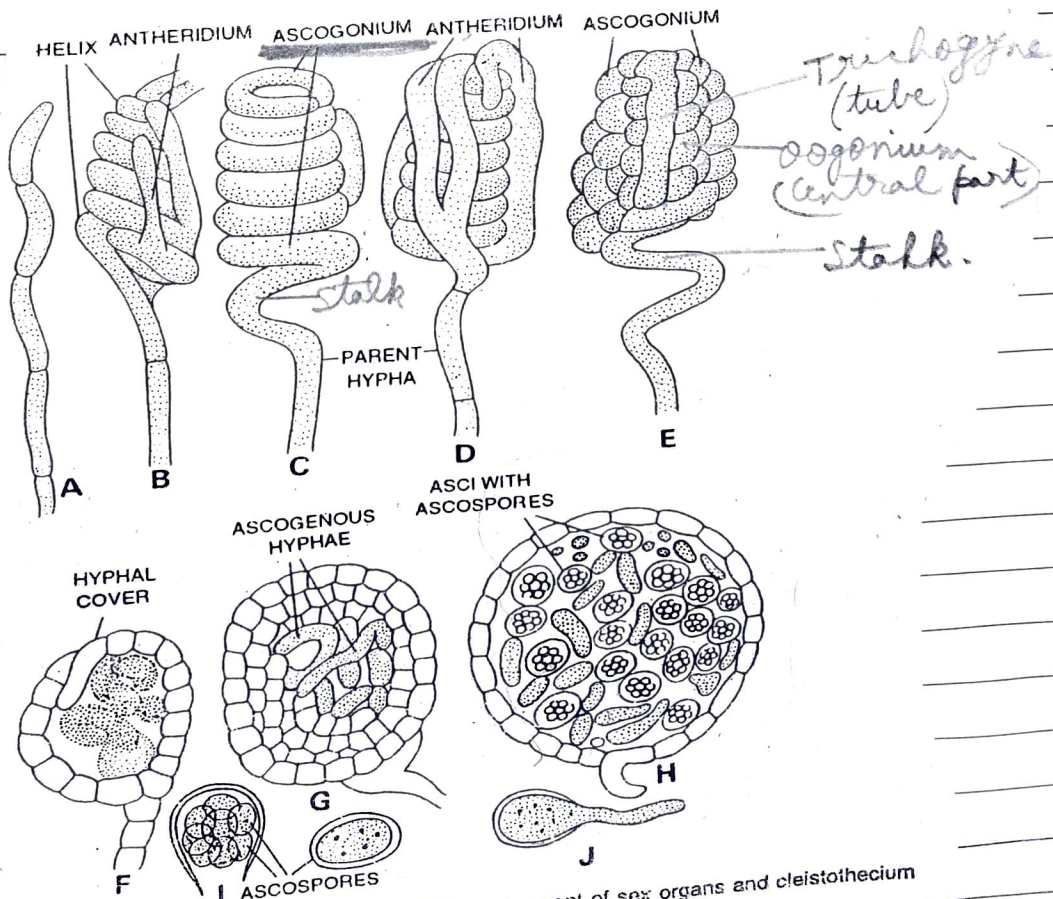 HELIX
ANTHERIDIUM
ASCOGONIUM
ANTHERIDIUM
ASCOGONIUM
Trichogyne
(tube)
oogonium
(central part)
Stahk.
stalk
PARENT
HYPHA
A
B
C
D
E
ASCI WITH
ASCOSPORES
ASCOGENOUS
HYPHAE
HYPHAL
COVER
F
G
H
I
ASCOSPORES
J
of sex organs and cleistothecium